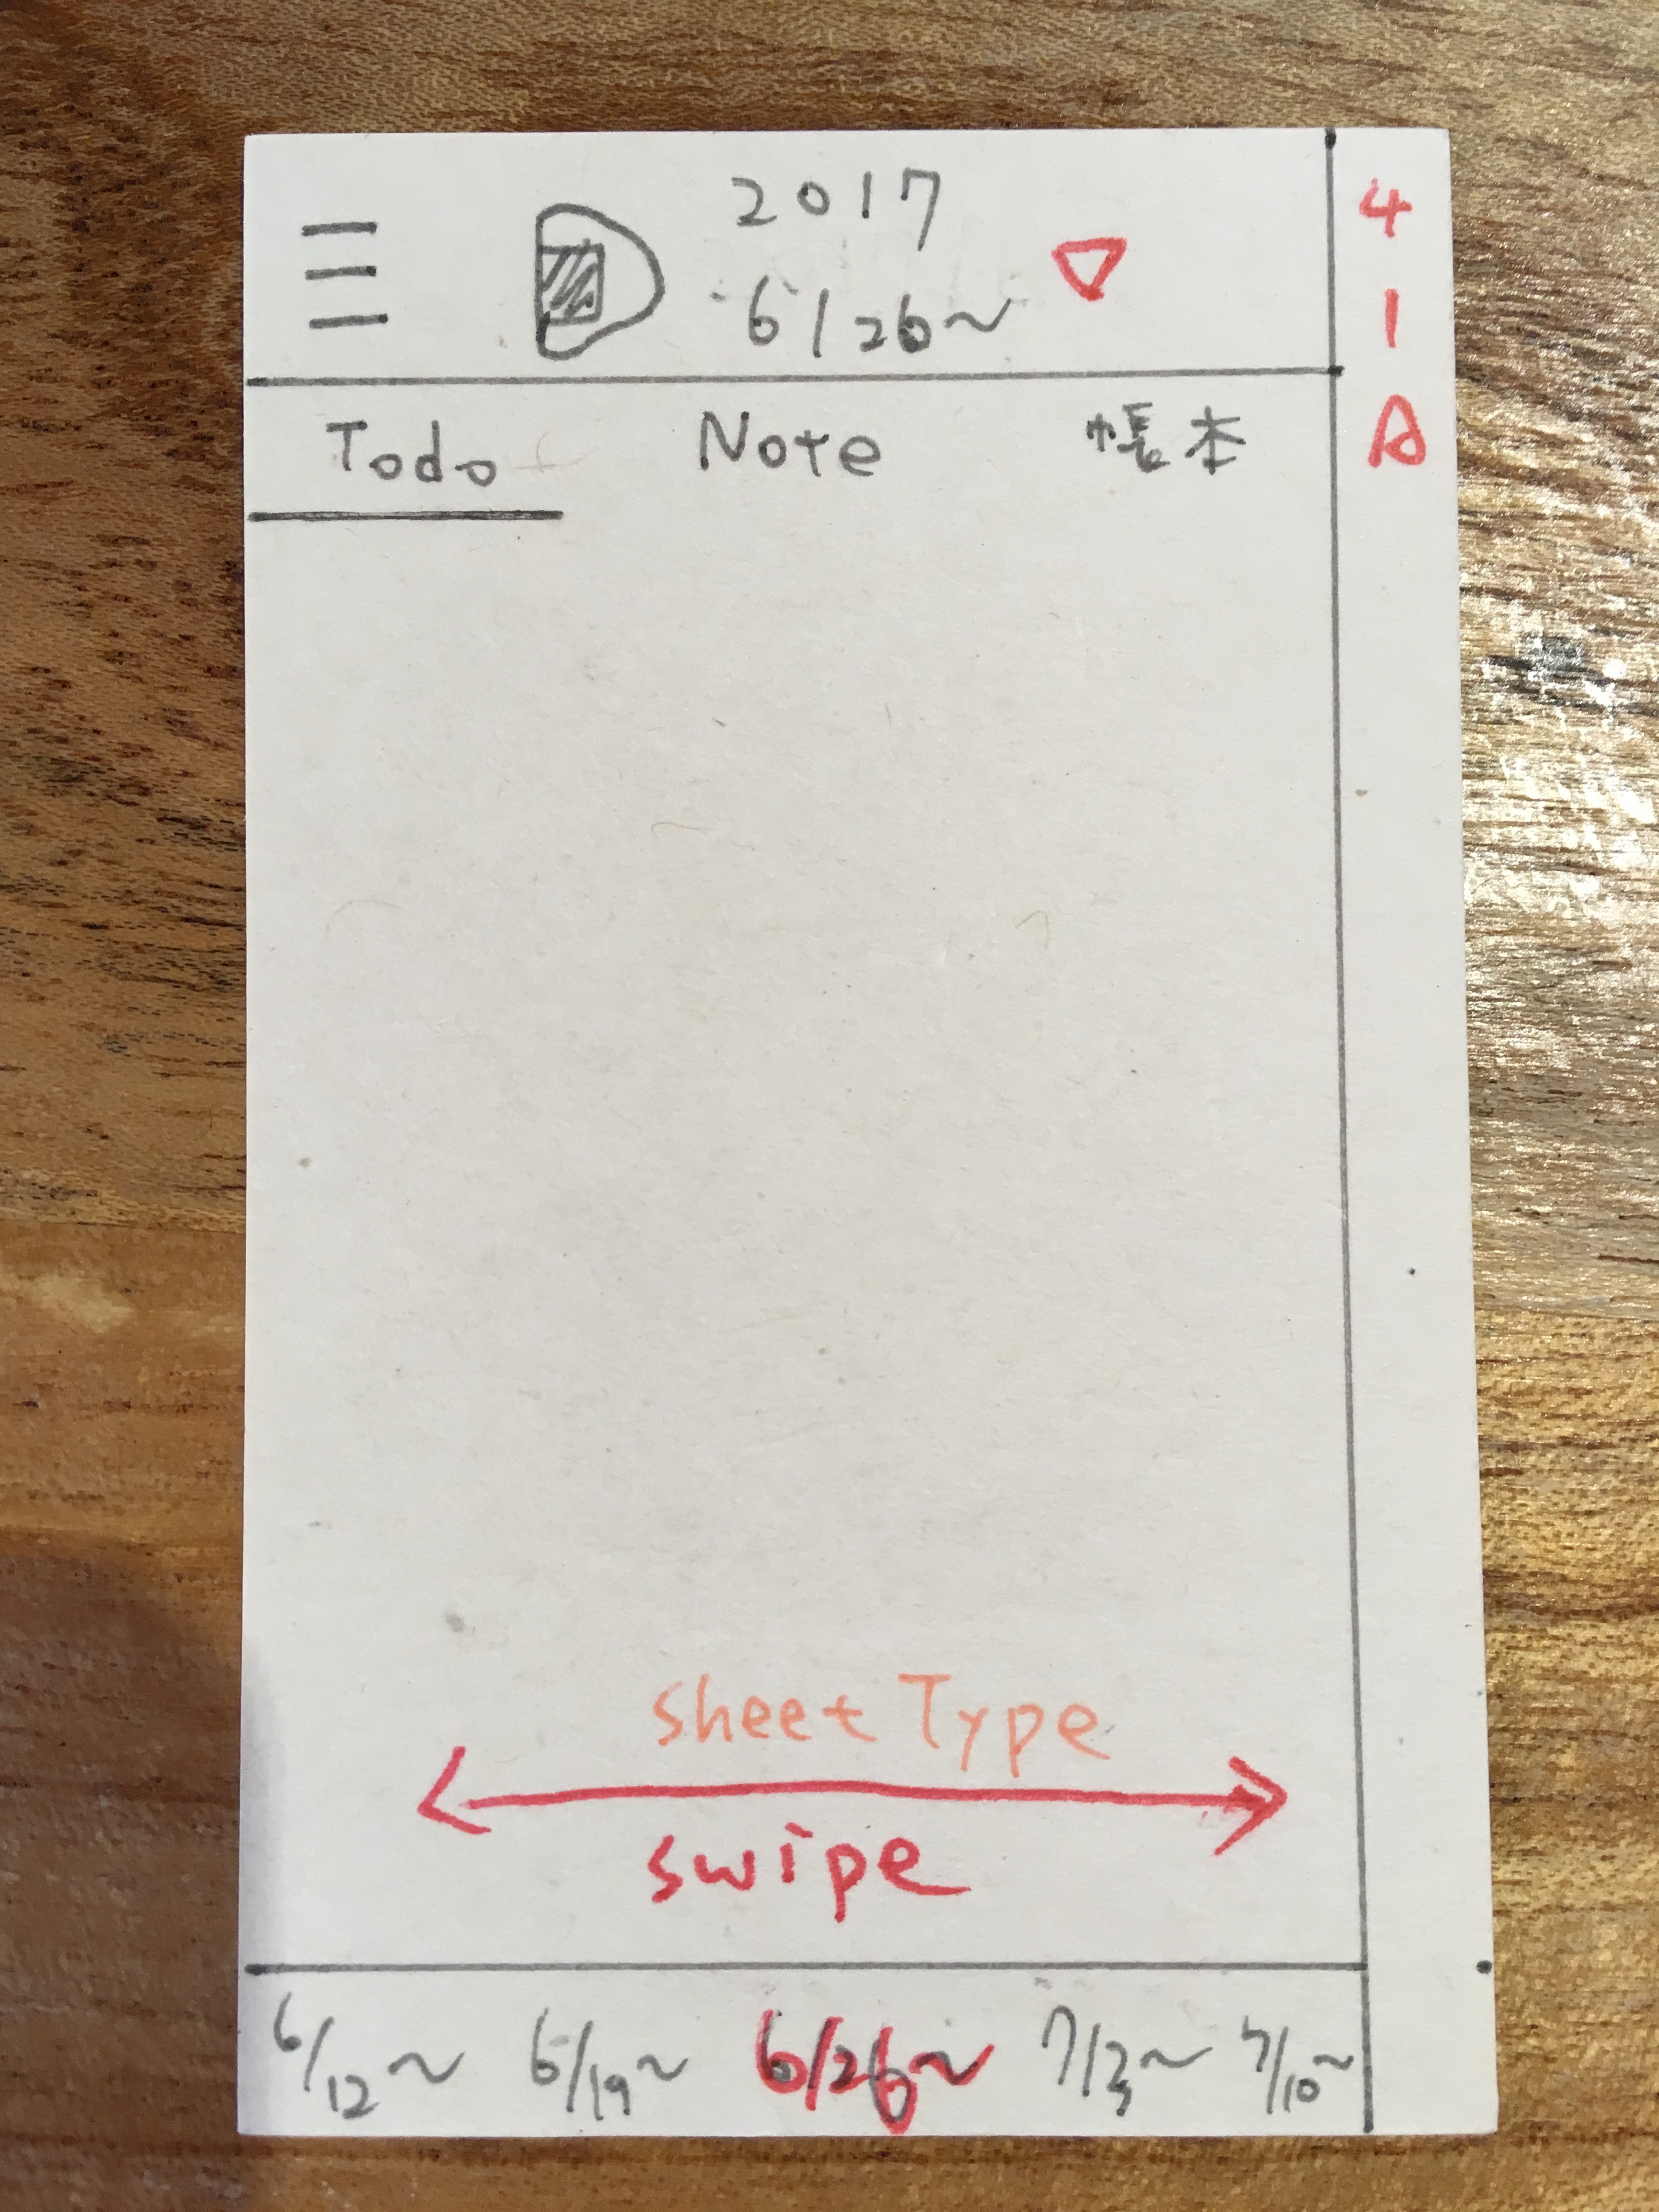 2017
6/26~
Todo Note 帳本
sheet Type
swipe
6/12~ 6/19~ 6/26~ 7/3~ 7/10~
4
1
A